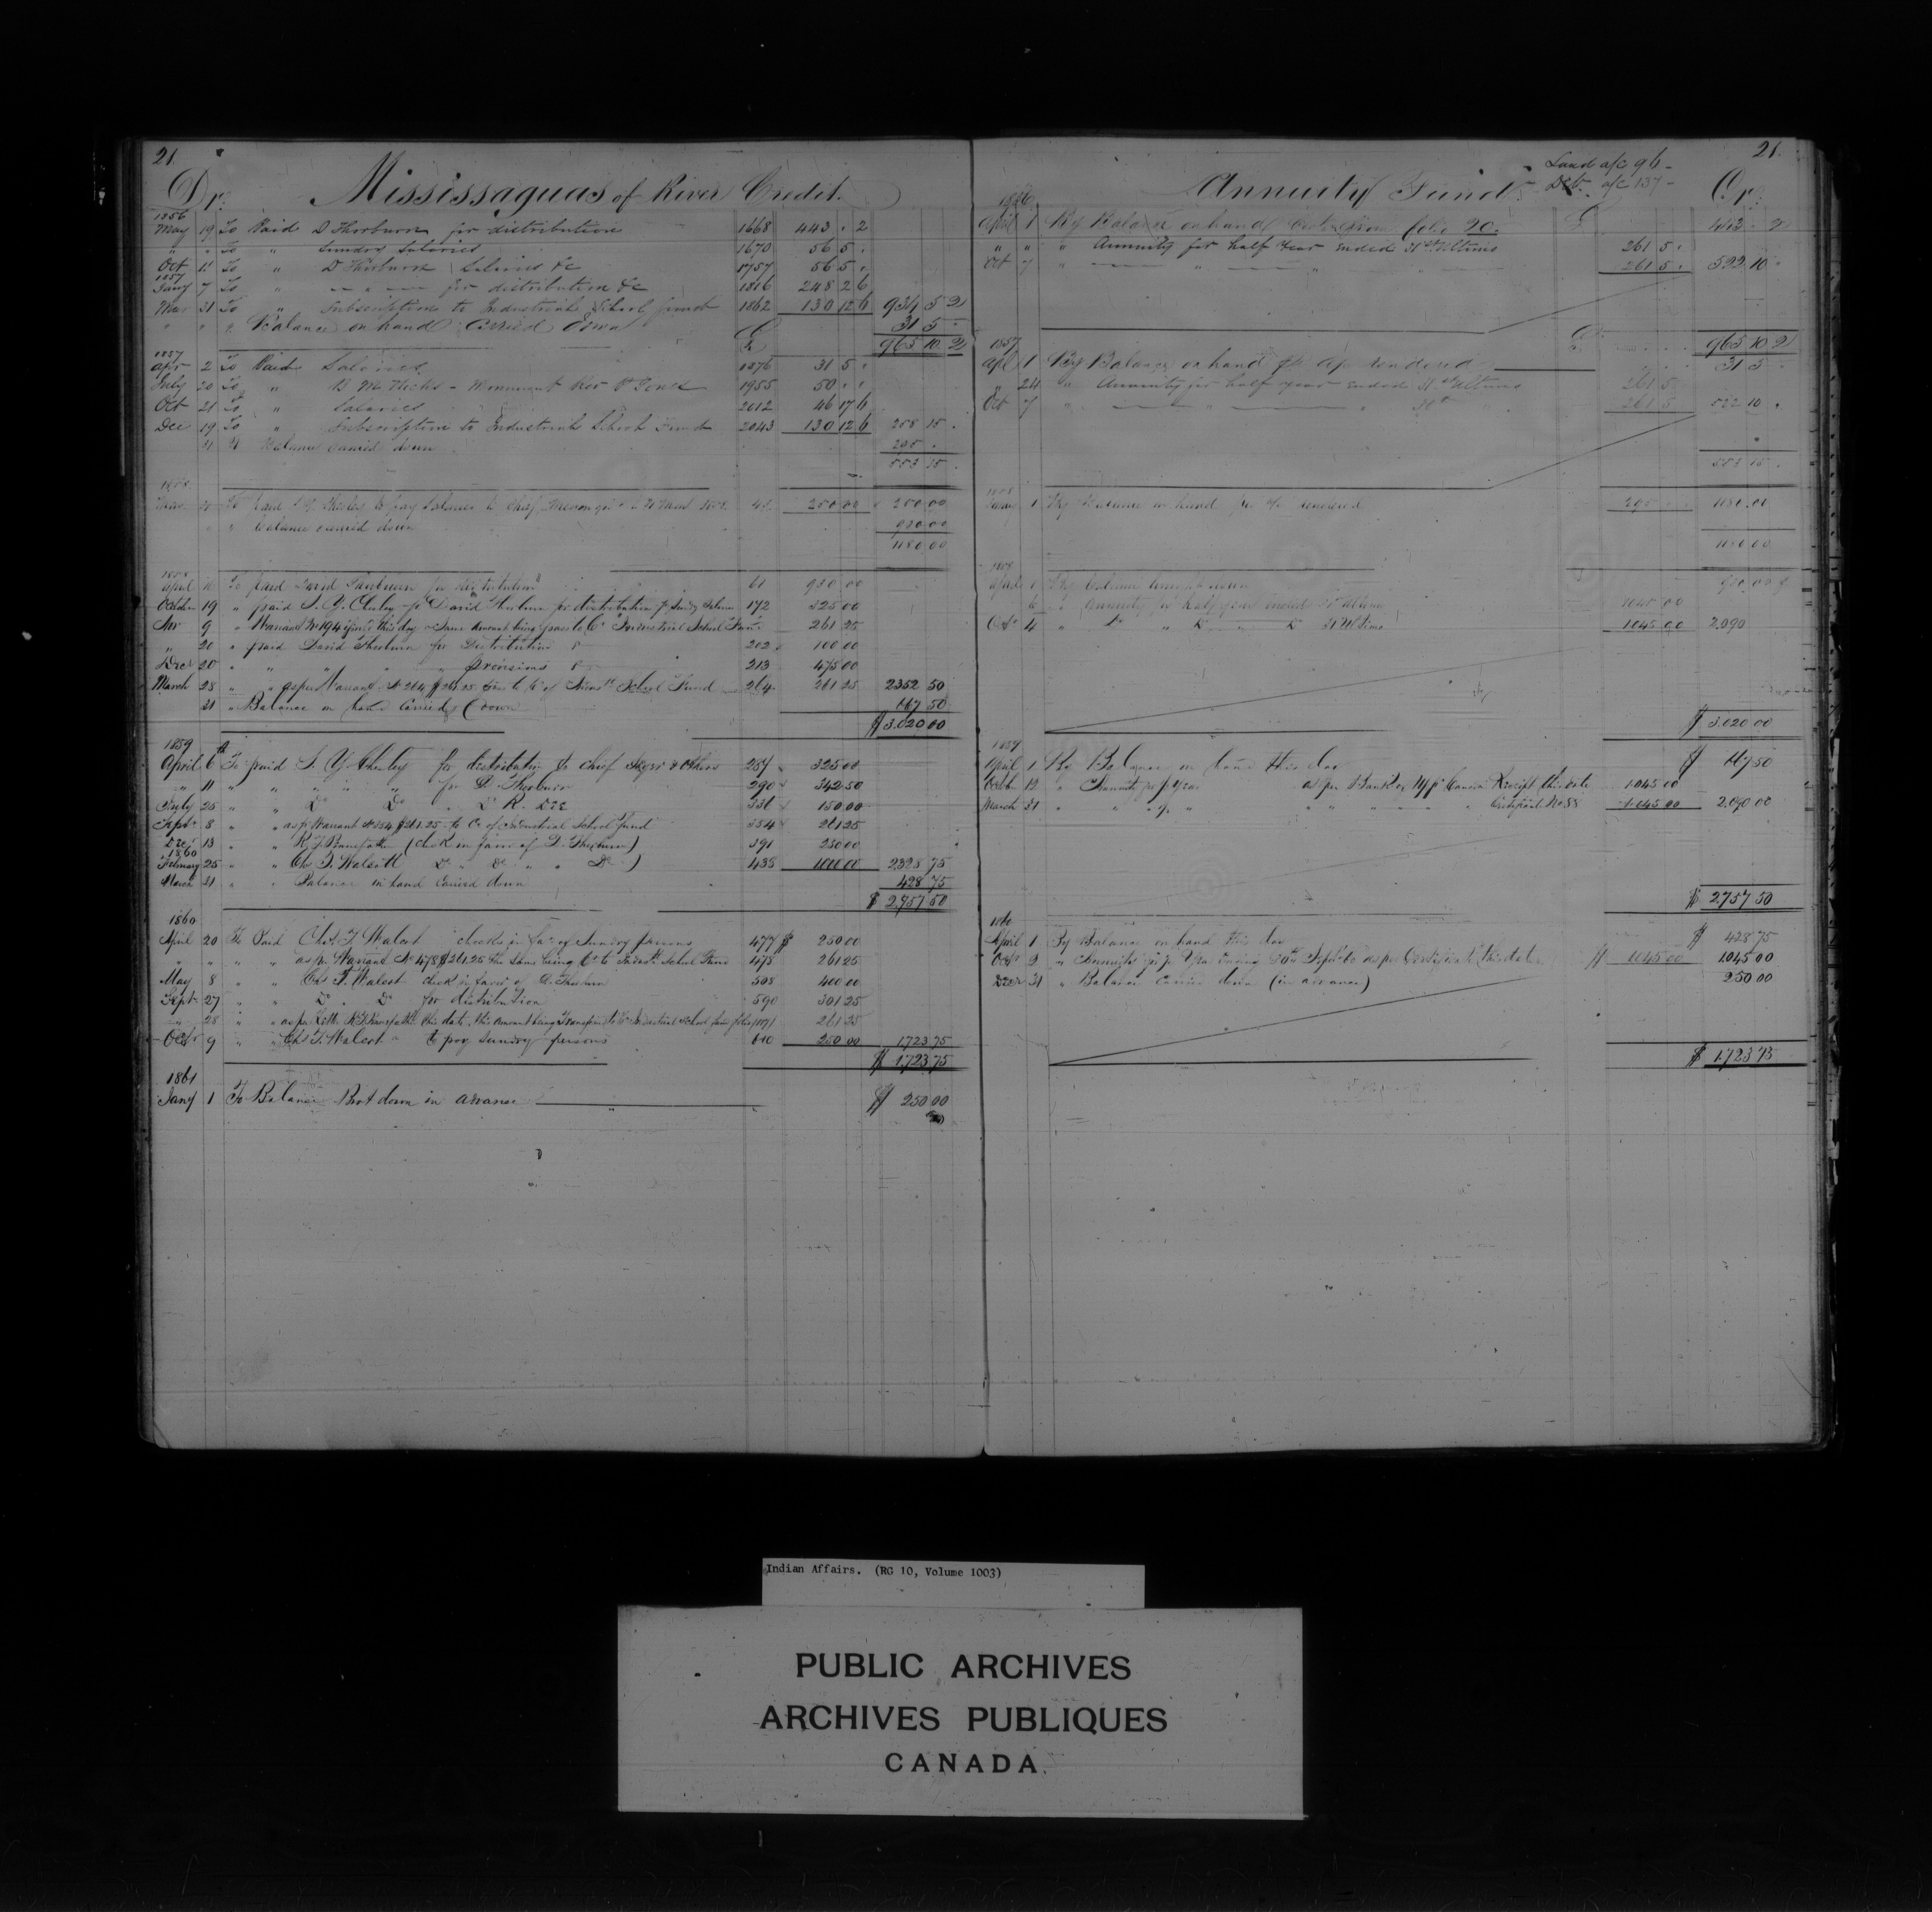 21
Dr. Mississaguas of River Credit.
1856
May 19 To Paid D Thorburn for distribution 1668 443 . 2
" " To " Sundry Salaries 1670 56 5 .
Oct 11 To " D Thorburn Salaries &c 1757 56 5 .
1857
Jany 7 To " " for distribution &c 1816 248 2 6
Mar 31 To " Subscription to Industrial School fund 1862 130 12 6 934 5 2
" " " Balance on hand Carried down 31 5 .
£ 965 10 2
1857
Apr 2 To Paid Salaries 1876 31 5 .
July 20 To " Monument 1955 50 . .
Oct 21 To " Salaries 2012 46 17 6
Dec 19 To " Subscription to Industrial School Fund 2043 130 12 6 258 15 .
31 " Balance carried down 295 .
553 15 .
1858
to pay Salaries to Chief 250 00 250 00
" " Balance carried down 930 00
1180 00
1858
April To paid David Thorburn for distribution 61 930 00
October 19 " paid S. Y. Chesley for David Thorburn for distribution 172 325 00
Nov 9 " Warrant No 194 this day Same amount being Industrial School Fund 261 25
" 20 " paid David Thorburn for Distribution 202 100 00
Decr 20 " " " " provisions 213 475 00
March 28 " " as per Warrant No 264 $261.25 School Fund 264 261 25 2352 50
31 " Balance on hand Carried down 667 50
$ 3.020 00
1859
April 6 To paid S. Y. Chesley for distribution to Chief & others 257 325 00
" 11 " " " " " for D. Thorburn 290 342 50
July 25 " " Do Do 150 00
Septr 8 " " as pr Warrant No 354 $261.25 to Cr of Industrial School fund 354 261 25
Decr 13 " " (check in favor of D. Thorburn) 391 250 00
1860
February 25 " " Chs T. Walcott Do Do " " Do ) 438 1000 00 2328 75
March 31 " " Balance in hand Carried down 428 75
$ 2,757 50
1860
April 20 To Paid Chs. T. Walcot checks in favr of Sundry persons 477 $ 250 00
" " " " as pr Warrant No 478 $261.25 the same being Cr to School Fund 478 261 25
May 8 " " Chs T. Walcot check in favor of D. Thorburn 508 400 00
Septr 27 " " Do " Do for distribution 590 301 25
" 28 " " as pr Letter this date, this amount being Industrial School fund folio 261 25
Octr 9 " " Chs T. Walcot " to pay Sundry persons 610 250 00 1723 75
$ 1,723 75
1861
Jany 1 To Balance Brot down in advance $ 250 00
21.
Land a/c 96 -
Deb. a/c 137 -
Annuity Fund Cr.
1856
April 1 By Balance on hand folio 20. £ 443 . 2
" " " Annuity for half Year ended 31st Ultimo 261 5 .
Oct 7 " " " 261 5 . 522 10 .
£ 965 10 2
1857
Apl 1 By Balance on hand a/c rendered 31 5 .
" 24 " Annuity for half year ended 31st Ultimo 261 5
Oct 7 " " " 261 5 522 10 .
553 15 .
1858
1 By Balance on hand pr a/c rendered 295 1180.00
1180 00
1858
April 1 By Balance brought down 930.00
" Annuity for half year ended 31 Ultimo 1045 00
Octr 4 " Do " Do Do 31 Ultimo 1045 00 2,090
$ 3.020 00
1859
April 1 By Balance on hand this day $ 667 50
Octb 12 " Annuity for ½ Year as per Bank of U/pr Canada Receipt this date 1.045 00
March 31 " " " " " " " " Certificate No. 88 1.045 00 2.090 00
$ 2,757 50
1860
April 1 By Balance on hand this day $ 428 75
Octr 2 " Annuity for ½ Year ending 30th Septr 60 as per Certificate this date $ 1045 00 1045 00
Decr 31 " Balance Carried down (in advance) 250 00
$ 1,723 75
Indian Affairs. (RG 10, Volume 1003)
PUBLIC ARCHIVES
ARCHIVES PUBLIQUES
CANADA.